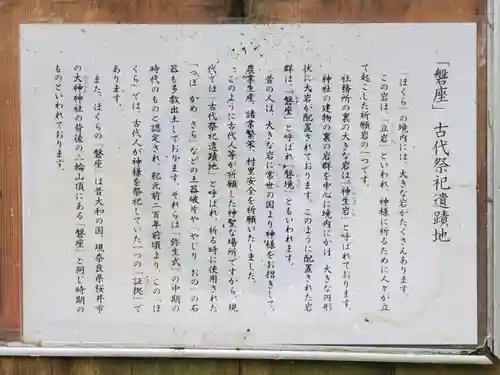 「磐座」古代祭祀遺蹟地
「ほくら」の境内には、大きな岩がたくさんあります。
この岩は、「立岩」といわれ、神様に祈るために人々が立
て起こした祈願岩の一つです。
社務所の裏の大きな岩は「神生岩」と呼ばれております。
神社の建物の裏の岩群を中心に境内にかけ、大きな円形
状に大岩が配置されております。このように配置された岩
群は、「磐座」と呼ばれ「磐境」ともいわれます。
昔の人は、大きな岩に常世の国より神様をお招きして、
農業生産、諸業繁栄、村里安全を祈願いたしました。
このように古代人等が祈願した神聖な場所ですから、現
代では、「古代祭祀遺蹟地」と呼ばれ、祈る時に使用された
「つぼ、かめ、さら」などの土器破片や「やじり、おの」の石
器も多数出土しております。それらは「弥生式」の中期の
時代のものと認定され、紀元前一百年前頃より、この「ほ
くら」では、古代人が神様を祭祀していた一つの「証拠」で
あります。
また、ほくらの「磐座」は昔大和の国、現奈良県桜井市
の大神神社の背後の三輪山頂にある「磐座」と同じ時期の
ものといわれております。